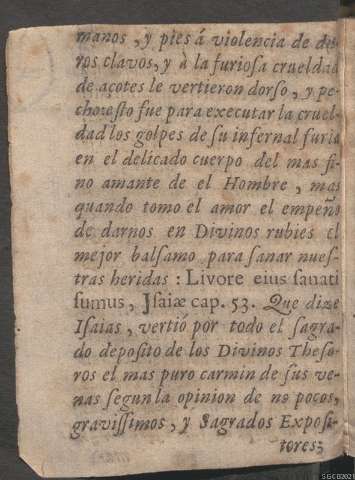 manos, y pies á violencia de du-
ros clavos, y à la furiosa crueldad
de açotes le vertieron dorso, y pe-
cho: esto fue para executar la cruel-
dad los golpes de su infernal furia
en el delicado cuerpo del mas fi-
no amante de el Hombre, mas
quando tomo el amor el empeño
de darnos en Divinos rubies el
mejor balsamo para sanar nues-
tras heridas: Livore eius sanati
sumus, Isaiæ cap. 53. Que dize
Isaias, vertió por todo el sagra-
do deposito de los Divinos Theso-
ros el mas puro carmin de sus ve-
nas segun la opinion de no pocos,
gravissimos, y Sagrados Exposi-
tores;
SGCB2021